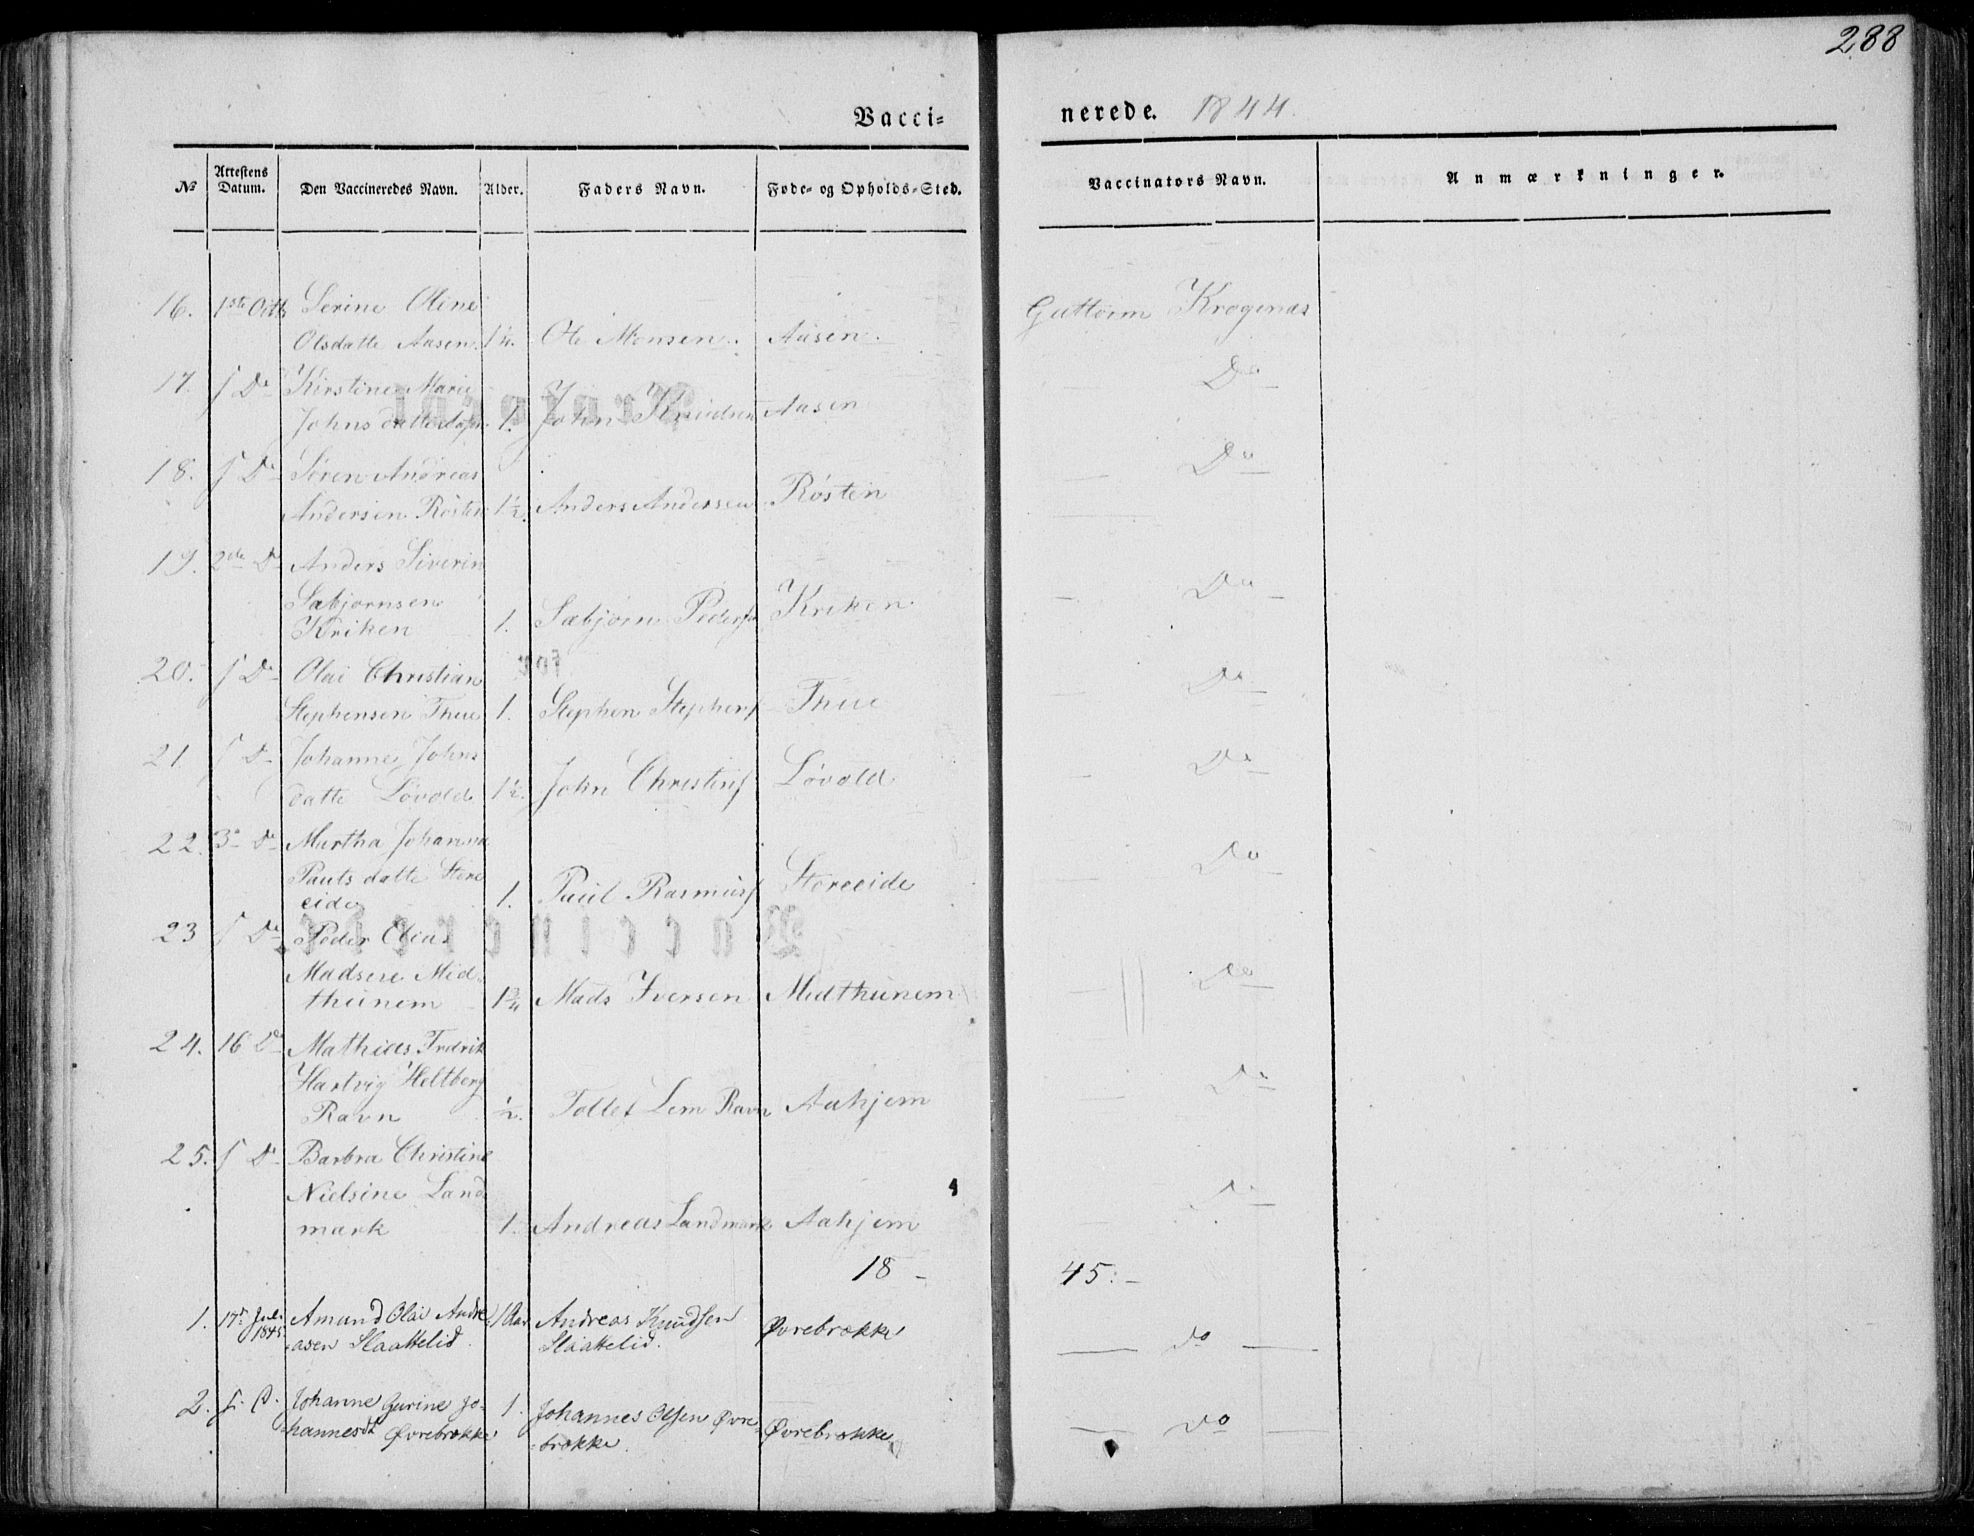 288
Vacci=
nerede. 1844.
No Attestens Datum. Den Vaccineredes Navn. Alder. Faders Navn. Føde- og Opholds-Sted. Vaccinators Navn. Anmærkninger.
16. 1ste Octb Serine Oline
Olsdatte Aasen. 1¼. Ole Monsen. Aasen. Guttorm Krogenæs
17. f D Kirstine Marie Do
Johns datte 1. John Knudsen Aasen
18. f D Søren Andreas Do
Andersen Røsten 1½. Anders Andersen Røsten
19. 2de D Anders Siverin
Sæbjørnsen Do
Kriken 1. Sæbjørn Peders Kriken
20. f D Olai Christian Do
Stephensen Thue 1. Stephen Stephens Thue
21 f D Johanne Johns Do
datte Løvold 1½. John Christens Løvold
22. 3 D Martha Johanna Do
Pauls datte Store
eide 1. Paul Rasmusf Storeeide
23 f D Peder Elias
Madsen Mid Do
thunem 1¾ Mads Iversen Midthunem
24. 16 D Mathias Fredrik
Hartvig Heltberg Do
Ravn ½. Tollef Lem Ravn Aahjem
25. f D Barbra Christine
Nielsine Land D
mark 1. Andreas Landmark Aahjem
18 - 45:-
1. 17de Juli 1845 Amand Olai Andre 1 Aar Andreas Knudsen Øvrebrække
=asen Slaattelid. Slaattelid. do
2. f. D. Johanne Gurine Jo- 1. Johannes Olsen Øvre Øvrebrække
=hannesdt Øvrebrække =brække. do